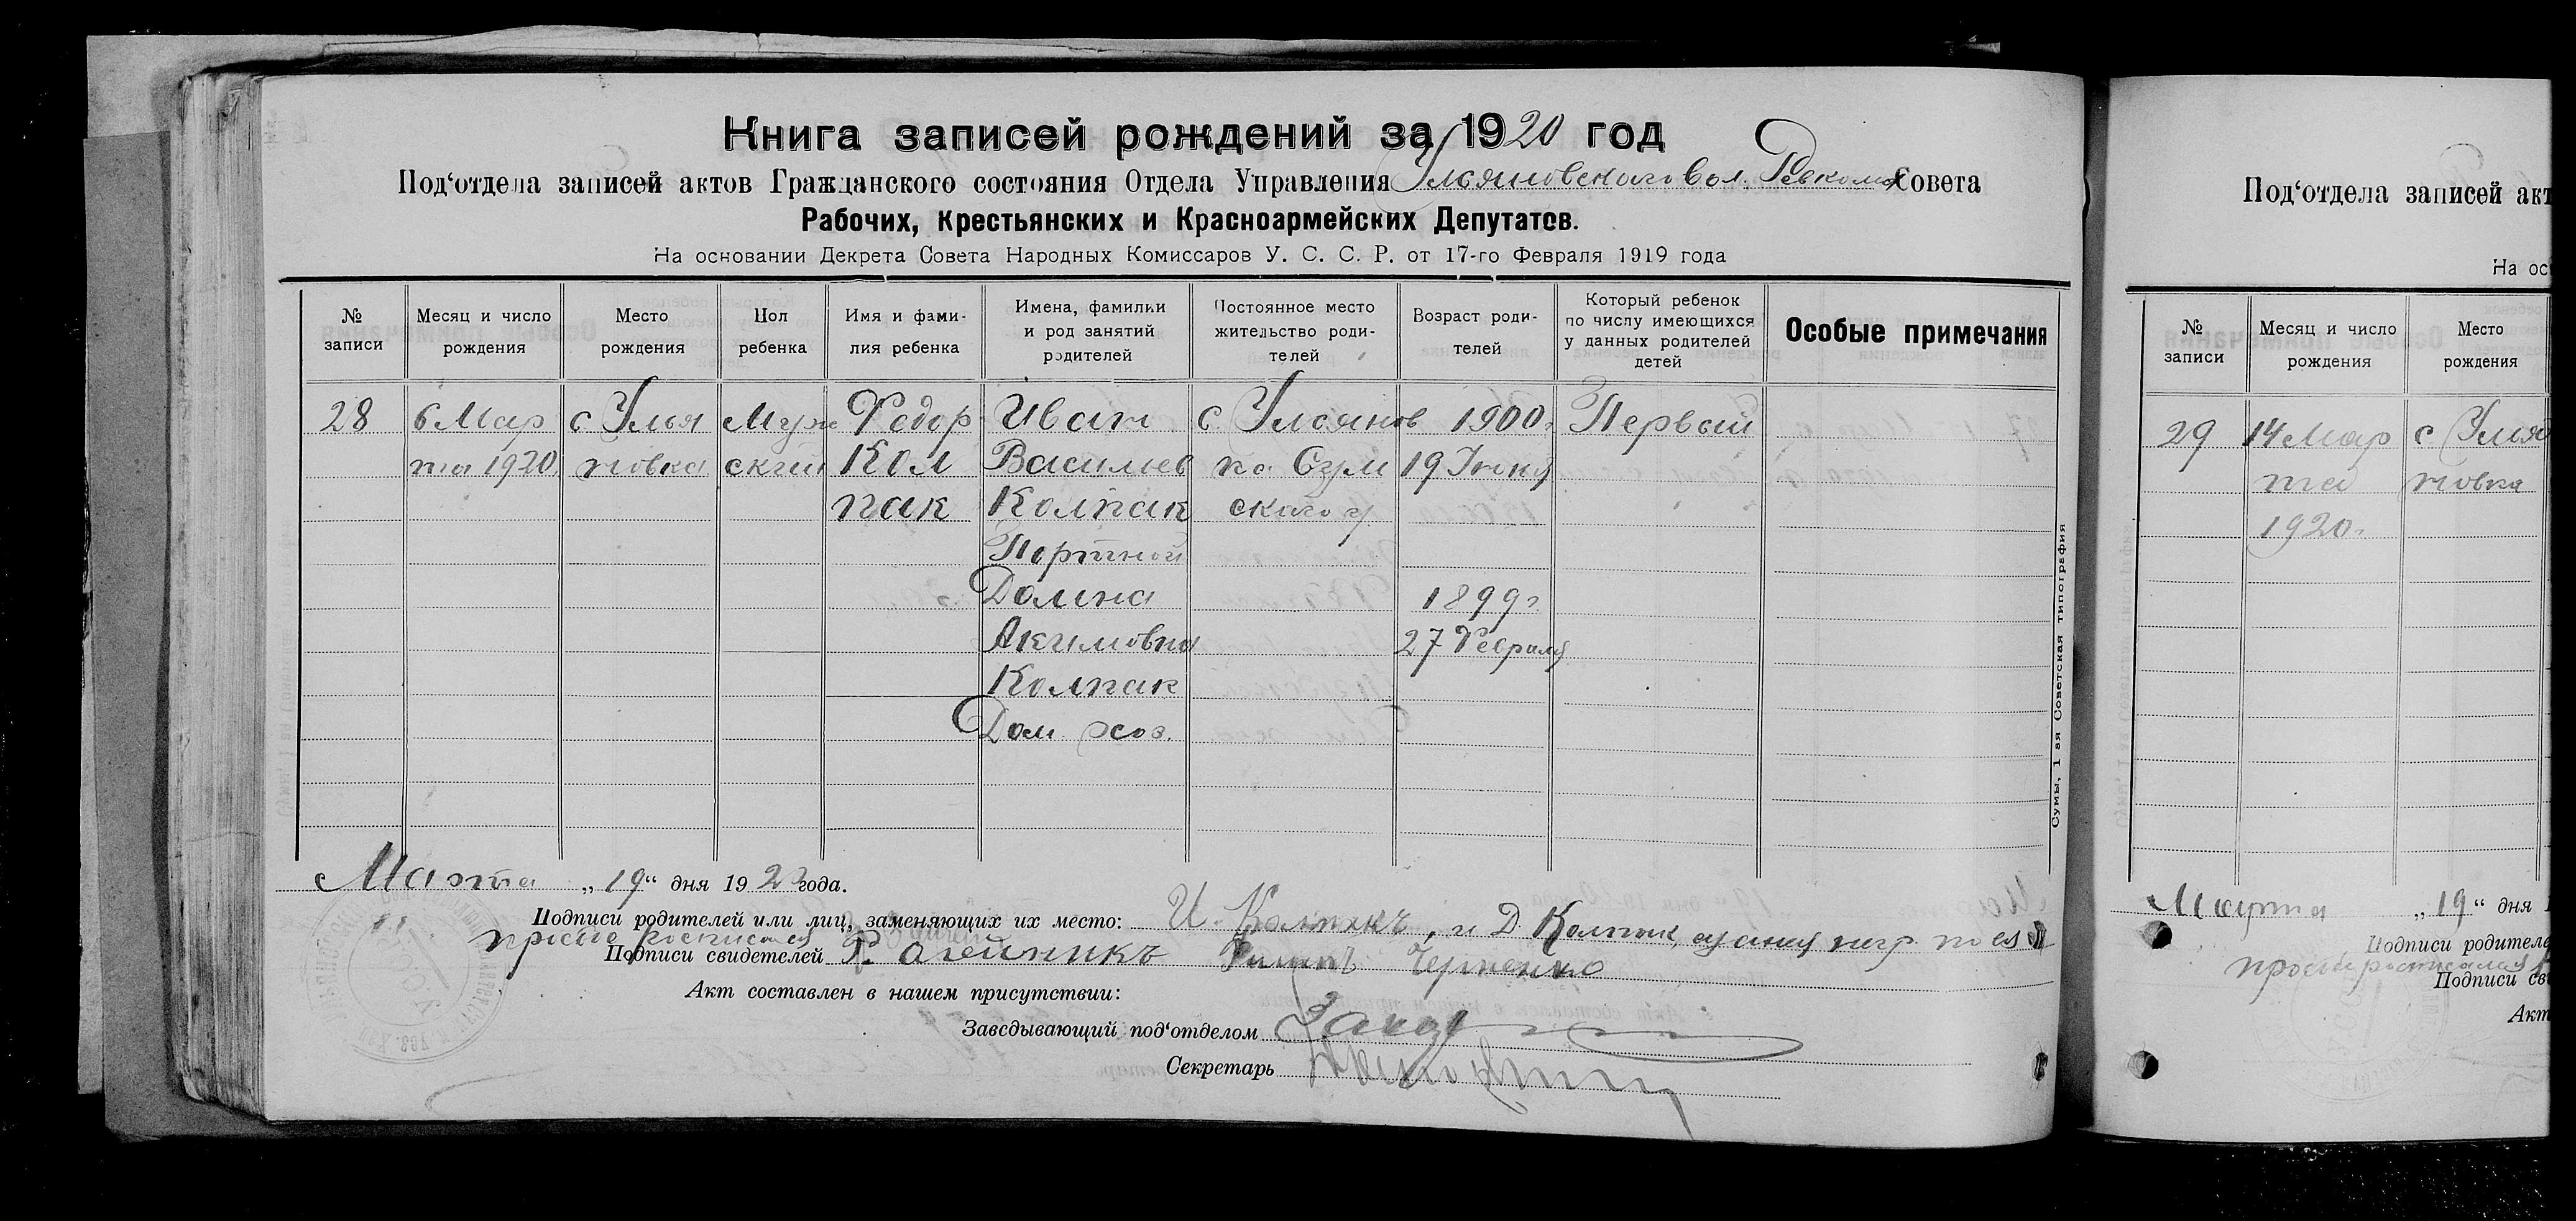 Книга записей рождений за 1920 год
Под‘отдела записей актов Гражданского состояния Отдела Управления Ульяновского Вол. Ревкома Совета
Рабочих, Крестьянских и Красноармейских Депутатов.
На основании Декрета Совета Народных Комиссаров У. С. С. Р. от 17-го Февраля 1919 года
№ записи
Месяц и число рождения
Место рождения
Пол ребенка
Имя и фами-
лия ребенка
Имена, фамилии
и род занятий
родителей
Постоянное место
жительство роди-
телей
Возраст роди-
телей
Который ребенок
по числу имеющихся
у данных родителей
детей
Особые примечания
28
6 Мар
та 1920
с Улья
новка
Муж
ский
Федор
Кол
пак
Иван
Васильев
Колпак
Портной
Домна
Акимовна
Колпак
Дом хоз.
с. Ульянов
ка Сум
ского у
1900г
19 Июня
1899г
27 Февраля
Первый
Сумы, 1 ая Советская типография
Марта „19“ дня 1920 года.
Подписи родителей или лиц, заменяющих их место: И. Колпакъ, и Д Колпак
просьбе росписался
Подписи свидетелей Филипъ Черненко
Акт составлен в нашем присутствии:
Заведывающий под‘отделом
Секретарь
Под‘отдела записей акт
На ос
№ записи
Месяц и число рождения
Место рождения
29
14 Мар
та
1920г
с Улья
новка
Марта „19“ дня 1
Подписи родителе
просьбе росписался
Подписи св
Акт